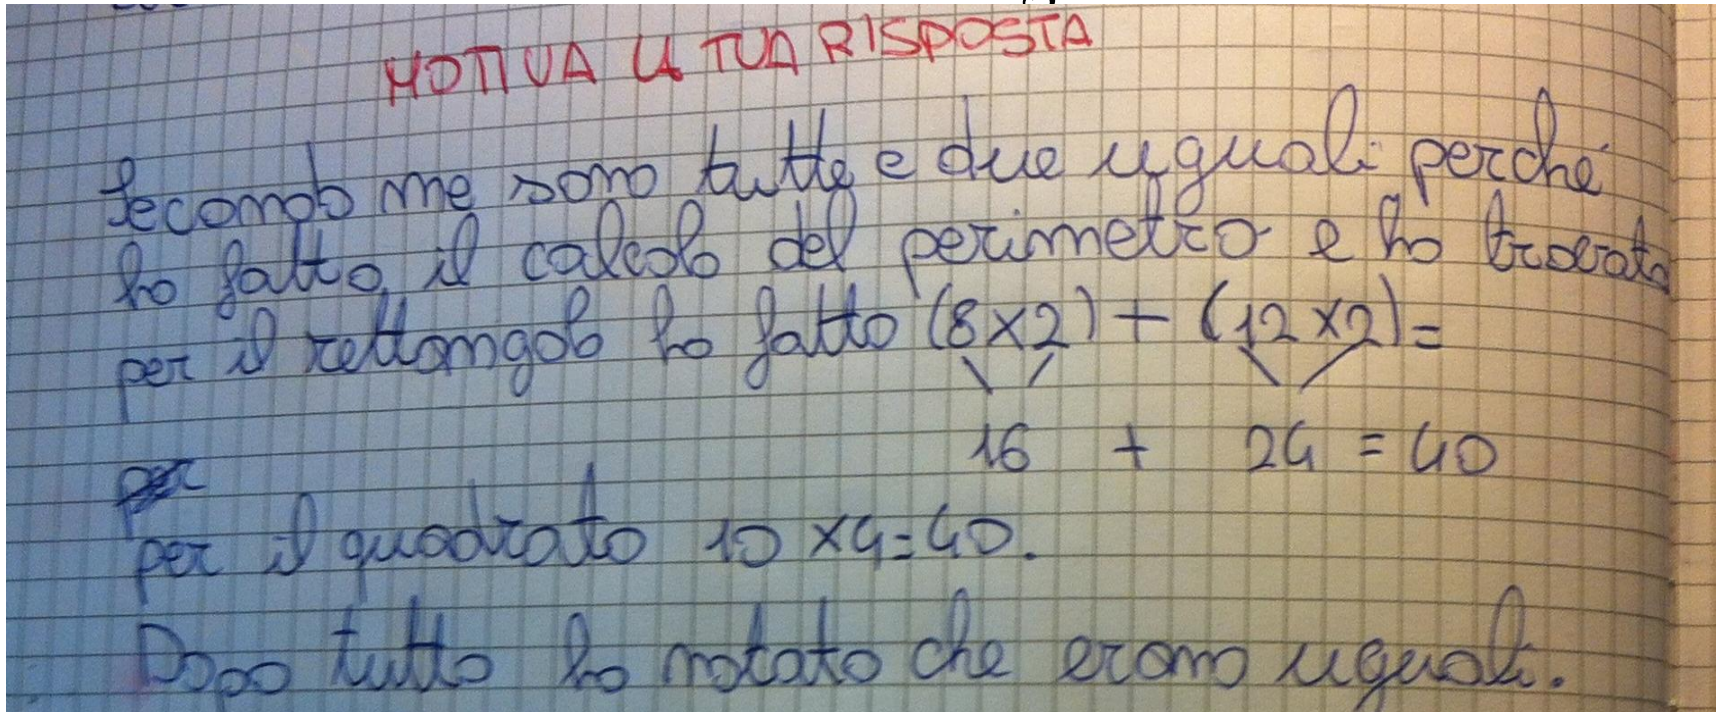 MOTIVA LA TUA RISPOSTA
Secondo me sono tutte e due uguali perché
ho fatto il calcolo del perimetro e ho trovato
per il rettangolo ho fatto (8x2) + (12x2)=
16 + 24 = 40
per il quadrato 10 x4=40.
Dopo tutto ho notato che erano uguali.